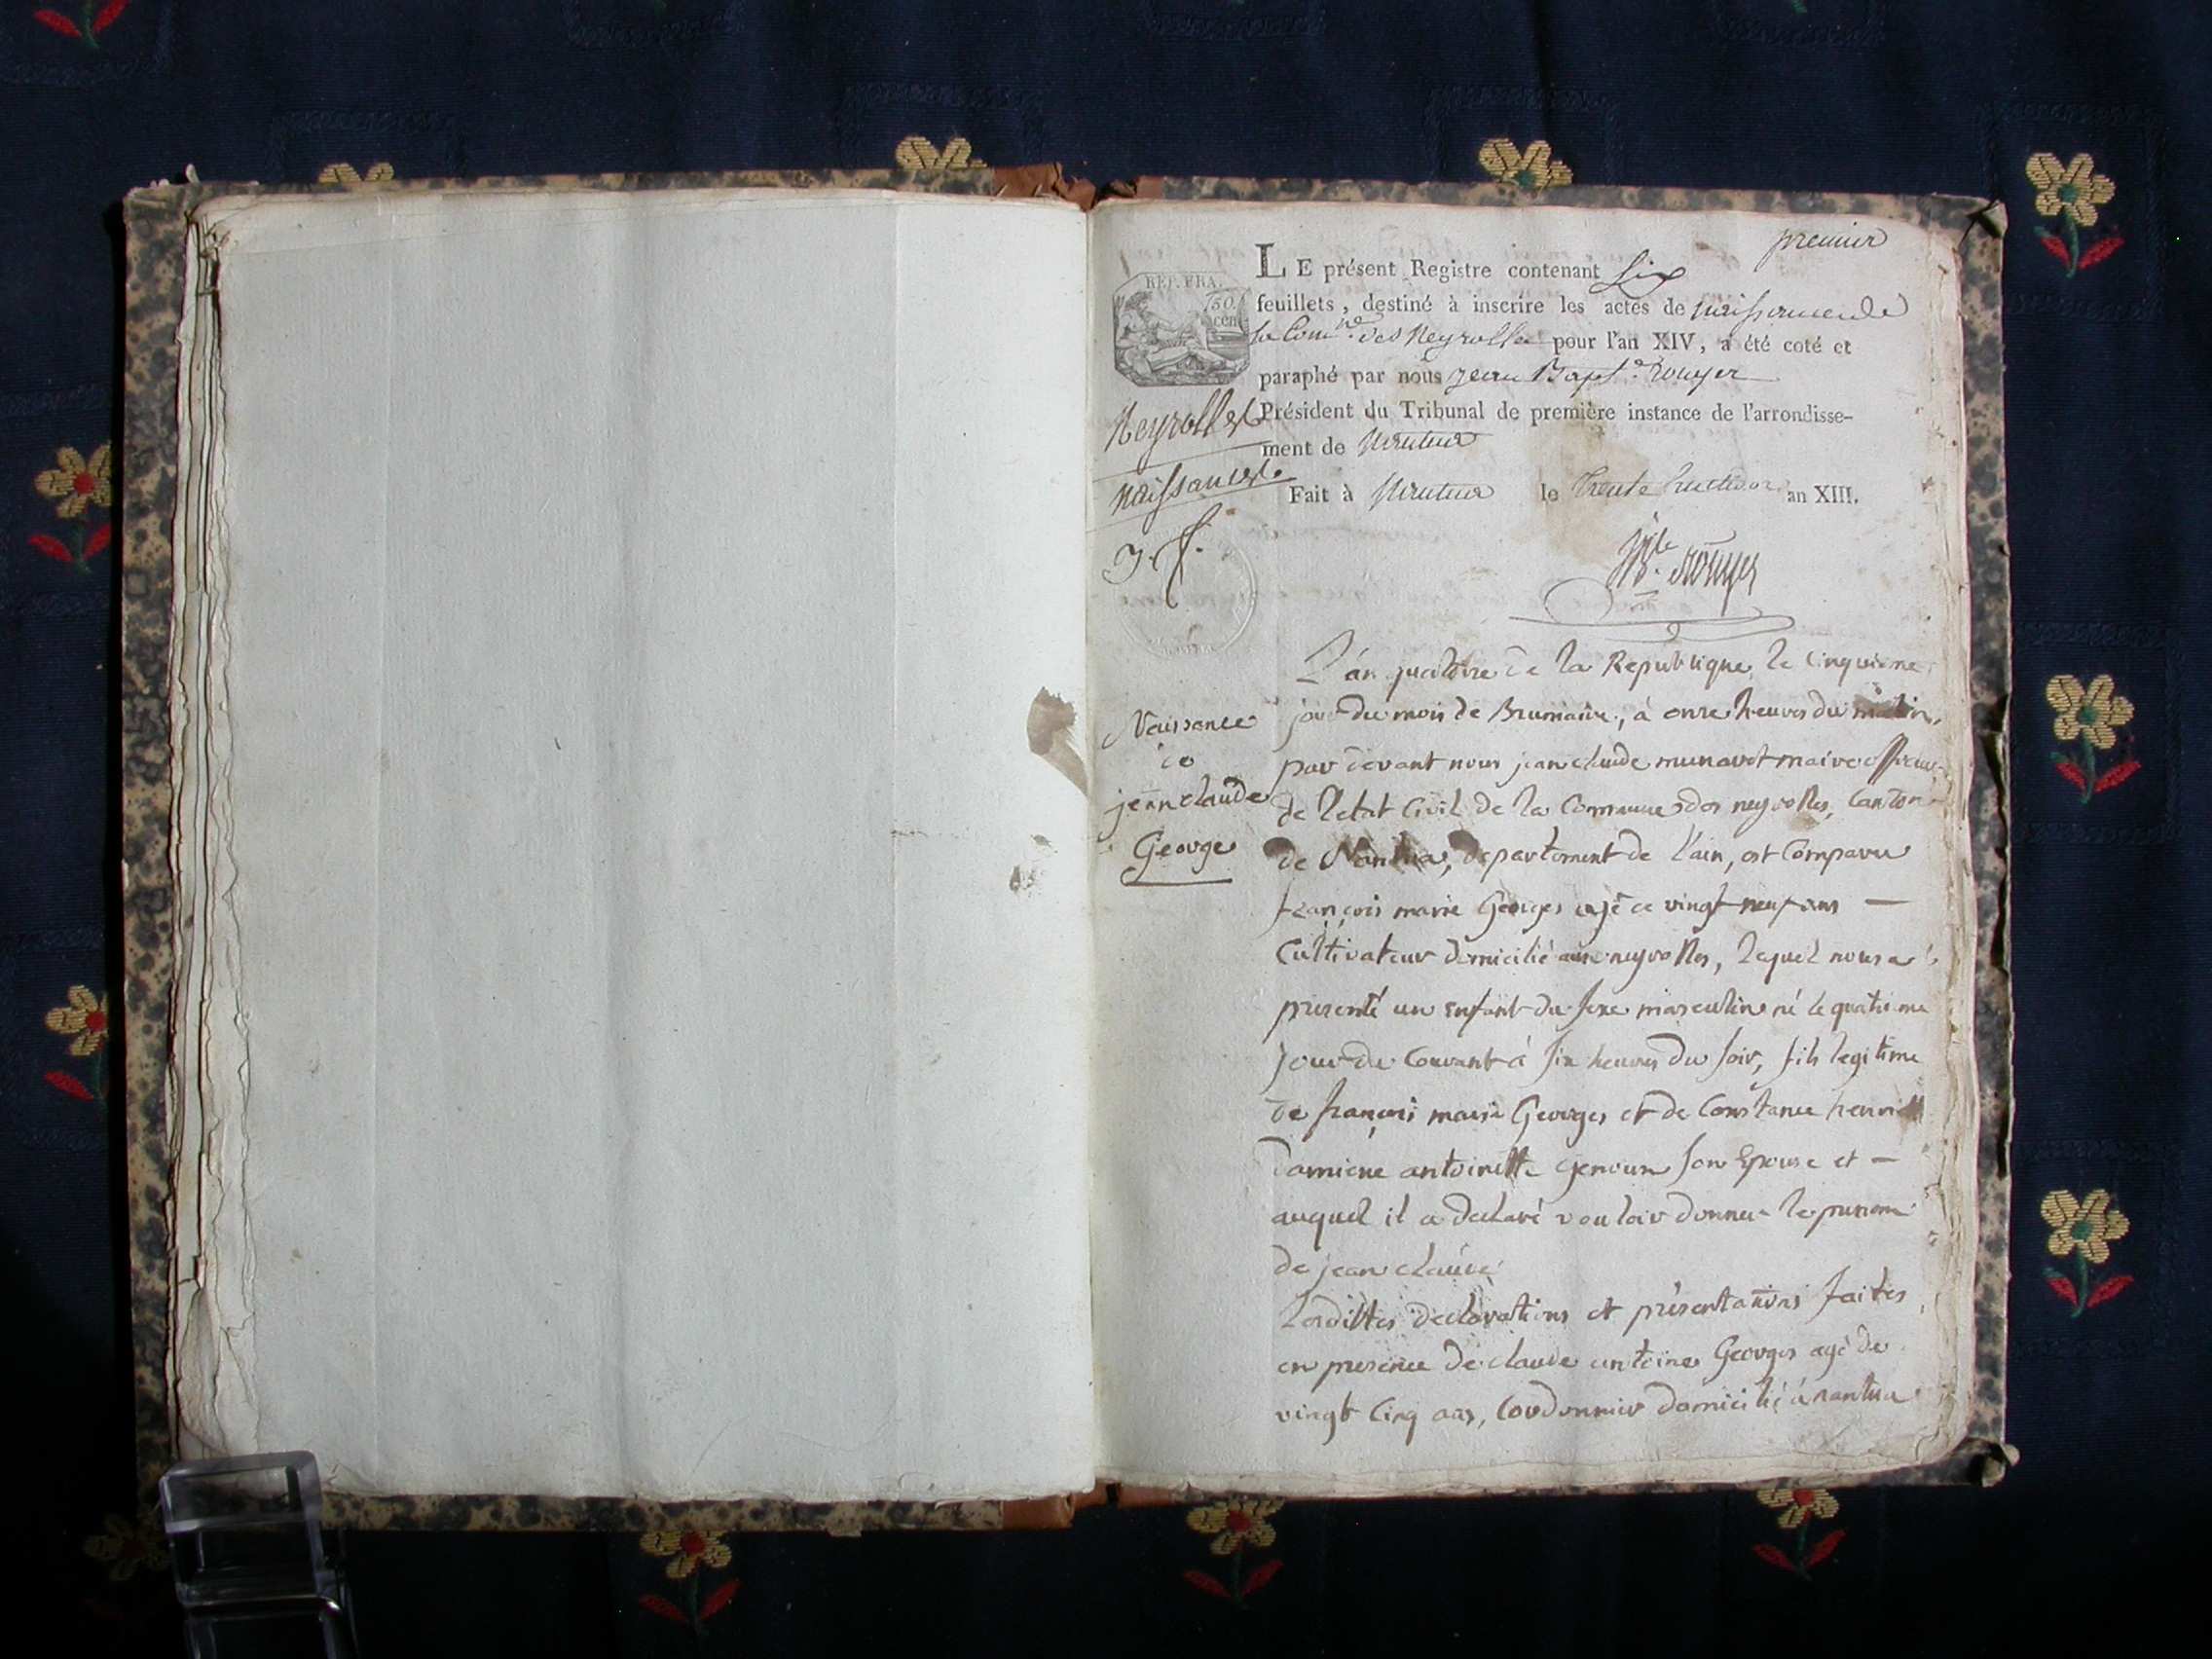 premier
REP. FRA.
50.
cen
LE présent Registre contenant Six
feuillets, destiné à inscrire les actes de naissances de
la Com.ne des Neyrolles pour l'an XIV, a été coté et
paraphé par nous jean Bapt.e Rouyer
Président du Tribunal de première instance de l'arrondisse-
ment de Nantua
Fait à Nantua le trente fructidor an XIII.
Neyrolles
naissances
Rouyer
Naissance
de
jean claude
George
L'an quatorze de la Republique, le cinquieme
jour du mois de Brumaire, à onze heures du matin,
par devant nous jean claude munavot maire officier
de l'etat Civil de la Commune des neyrolles, Canton
de Nantua, departement de l'ain, est Comparu
françois marie Georges agé de vingt neuf ans —
Cultivateur domicilié aux neyrolles, lequel nous a
presenté un enfant du sexe masculin né le quatrieme
jour du Courant à six heures du soir, fils legitime
de françois marie Georges et de Constance henriette
damiene antoinette son Epouse et —
auquel il a declaré vouloir donner le prenom
de jean claude
Lesdittes declarations et présentations faites
en presence de claude antoine Georges agé de
vingt Cinq ans, Cordonnier domicilié à nantua